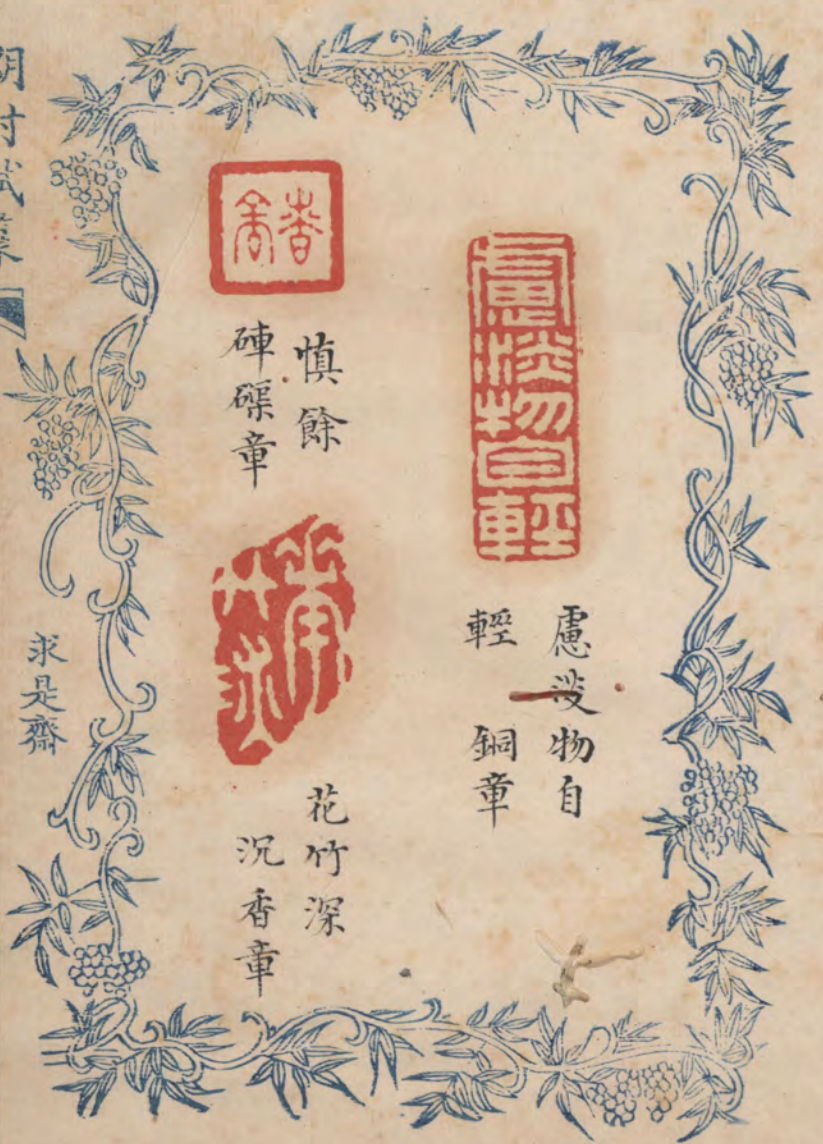 慮淡物自輕
慮淡物自
輕 銅章
慎餘
硨磲章
花竹深
沉香章
求是齋